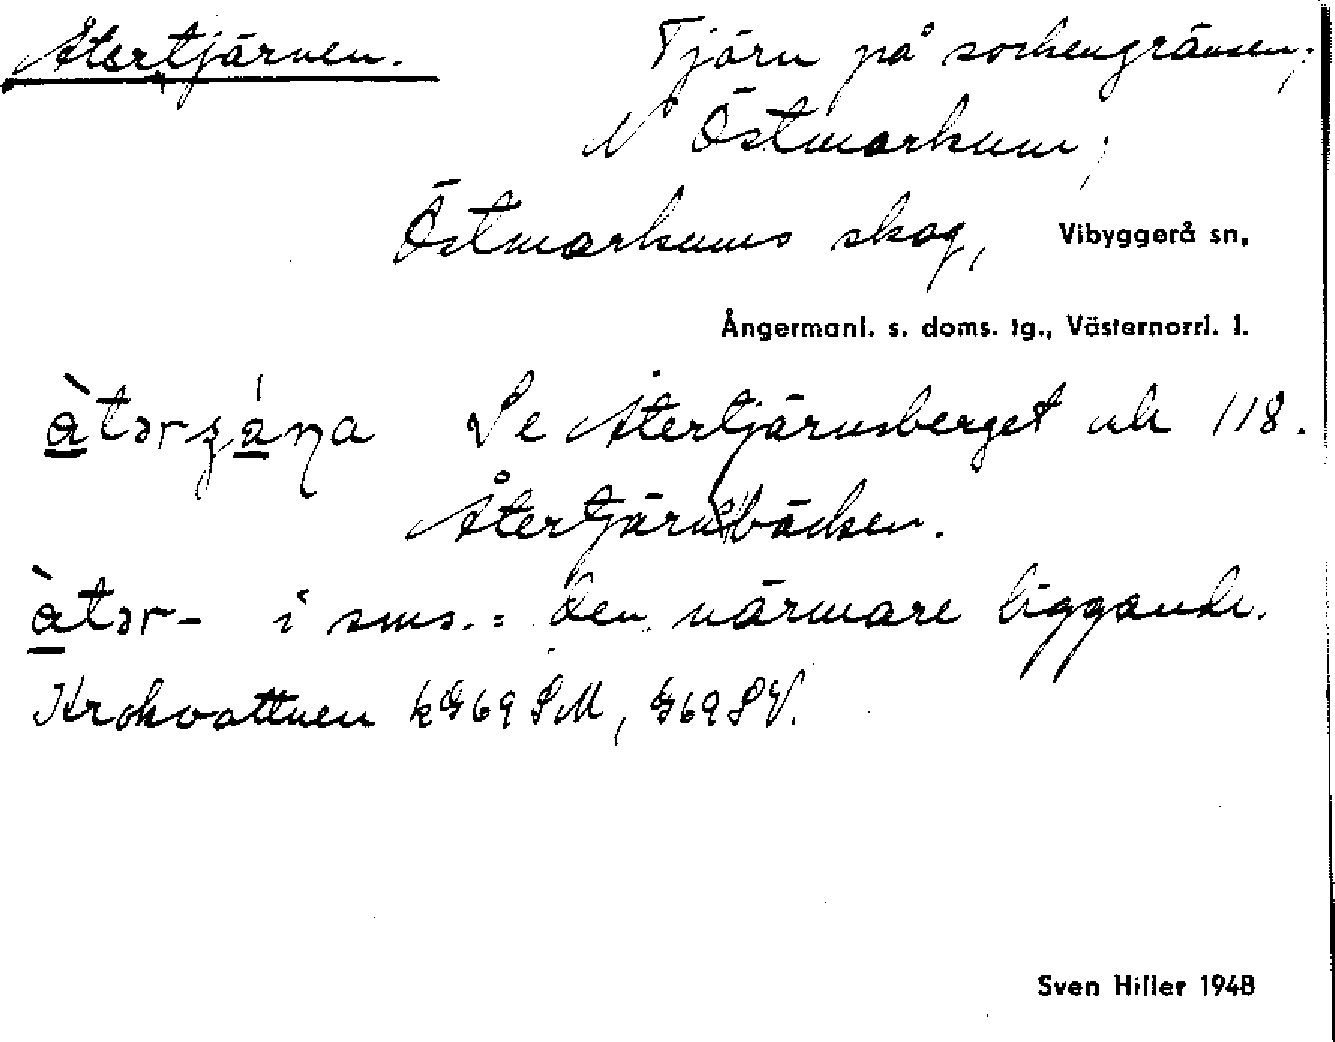 Återtjärnen. Tjärn på sockengränsen;
N Östmarkum;
Östmarkums skog, Vibyggerå sn,
Ångermanl. s. doms. tg., Västernorrl. l.
Se Återtjärnsberget uk 118.
Återtjärnsbäcken.
àtər- i sms. = den närmare liggande.
Krokvattnen k969SM, 969SV.
Sven Hiller 1948